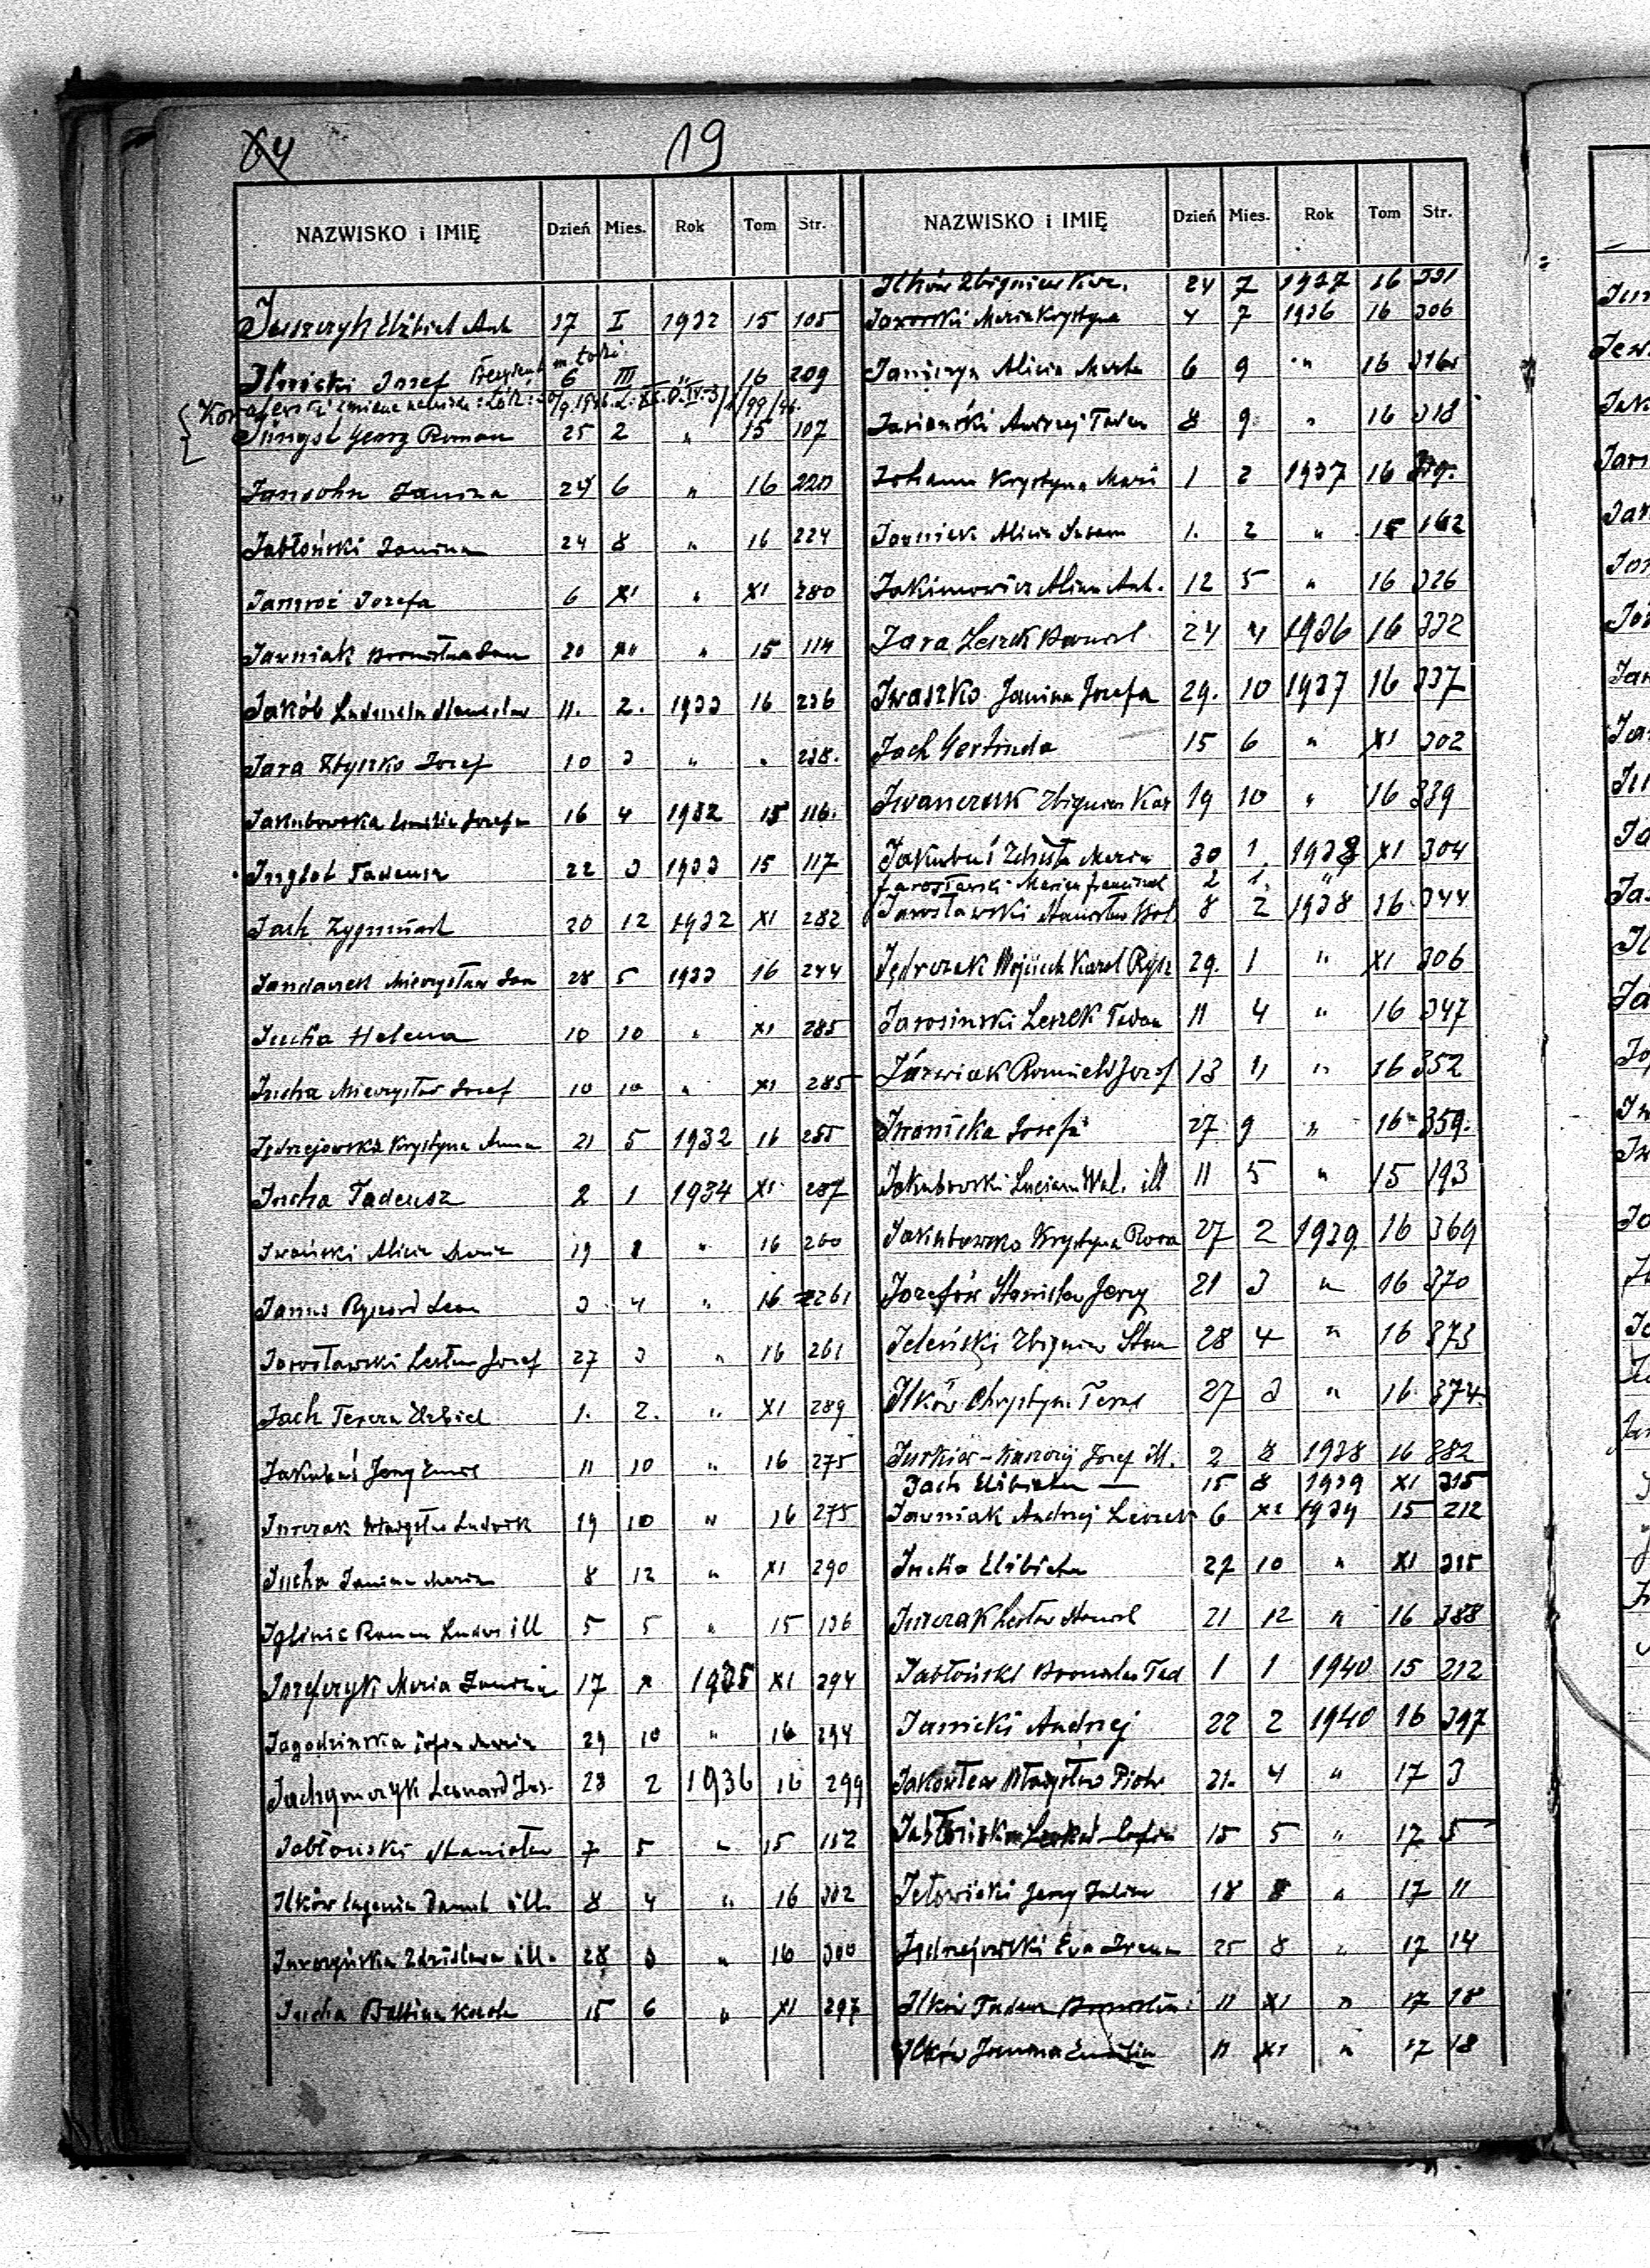 64
19
NAZWISKO i IMIĘ Dzień Mies. Rok Tom Str.
Juszczyk Elżbiet Ant 17 I 1932 15 105
Ilnicki Josef 6 III " 16 209
Koraferski zmiana nazwiska
Jüngst Georg Roman 25 2 " 15 107
Jansohn Janina 24 6 " 16 220
Jabłoński Janina 24 8 " 16 224
Jamroz Jozefa 6 XI " XI 280
Jawniak Bronisława Jan 20 XII " 15 114
Jakób Stanisław 11. 2. 1933 16 236
Jara Zbyszko Jozef 10 3 " " 238.
Jakubowska Emilia Jozefa 16 4 1932 15 116.
Inglot Tadeusz 22 3 1933 15 117
Jach Zygmunt 20 12 1932 XI 282
Jandaszek Mieczysław Jan 28 5 1933 16 244
Jucha Helena 10 10 " XI 285
Jucha Mieczysław Jozef 10 10 " XI 285
Jędrzejowska Krystyna Anna 21 5 1932 16 255
Jucha Tadeusz 2 1 1934 XI 287
Iwański Alicia Maria 19 " 16 260
Janus Ryszard Leon 3 4 " 16 261
Jarosławski Lesław Jozef 27 3 " 16 261
Jach Teresa Elżbiet 1. 2. " XI 289
Jakubaś Jerzy Emil 11 10 " 16 275
Jurczak Władysław Ludwik 19 10 " 16 275
Jucha Janina Maria 8 12 " XI 290
Iglinic Roman Ludw ill 5 5 " 15 136
Jozefczyk Maria Janina 17 X 1935 XI 294
Jagodzinska Zofia Maria 29 10 " 16 294
Jachymczyk Leonard Jos. 28 2 1936 16 299
Jabłonski Stanisław 7 5 " 15 152
Ilków Eugenia Danuta ill. 8 4 " 16 302
Zdzisława ill. 28 3 " 16 300
Jucha Balbina Karola 15 6 " XI 297
NAZWISKO i IMIĘ Dzień Mies. Rok Tom Str.
Ilków Zbigniew Kaz. 24 7 1937 16 331
Jaworski Maria Krystyna 4 7 1936 16 306
Alicia Marta 6 9 " 16 316
Jasiański Andrzej Tadeu 8 9 " 16 318
Johann Krystyna Mari 1 2 1937 16
Jawniak Alicia Susan 1. 2 " 15 162
Jakimowicz Alina Ant. 12 5 " 16 326
Jara Leszek 24 4 1936 16 332
Iwaszko Janina Jozefa 29. 10 1937 16 337
Jach Gertruda 15 6 " XI 302
Iwanczak Zbigniew Kaz 19 10 " 16 339
Jakubaś Maria 30 1. 1938 XI 304
Jarosławski Marian Franciszek 2 1. "
Jarosławski Stanisław Bol 8 2 1938 16 344
Jędrczak Wojciech Karol Rysz 29. 1 " XI 306
Jarosinski Leszek Tadeu 11 4 " 16 347
Józwiak Romuald Jozef 13 11 " 16 352
Iwanicka Josefa 27 9 " 16 359.
Jakubowski Lucian Wal. ill 11 5 " 15 193
Jakubowska Krystyna Rosa 27 2 1939 16 369
Jozefów Stanisław Jerzy 21 3 " 16 370
Jeleński Zbigniew Stan 28 4 " 16 373
Ilków Chrystyn. Teres 27 3 " 16 374.
Jurkiw- Jozef ill. 2 8 1938 16 382
Jach Elżbieta — 15 8 1939 XI 315
Jawniak Andrzej Leszek 6 XI 1939 15 212
Jucha Elżbieta 27 10 " XI 315
Jurczak Lesław 21 12 " 16 388
Jabłoński Bronisław Tad 1 1 1940 15 212
Janicki Andrzej 22 2 1940 16 397
Jakowlew Władysław Piotr 21. 4 " 17 3
15 5 " 17 5
Jełowicki Jerzy Julian 18 8 " 17 11
Jędrzejowski Eva Irena 25 8 " 17 14
Ilków Tadeusz 11 XI " 17 18
Ilków Joanna Emilia 11 XI " 17 18